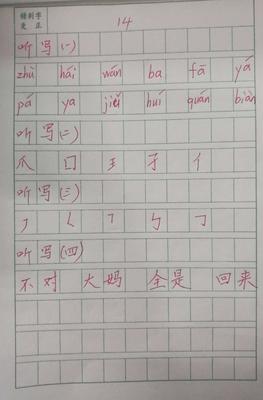 错别字
更正
14
听写(一)
zhǔ hái wán ba fā yá
pá ya jiǔ huí quán biàn
听写(二)
爪 囗 王 子 亻
听写(三)
听写(四)
不对 大妈 全是 回来